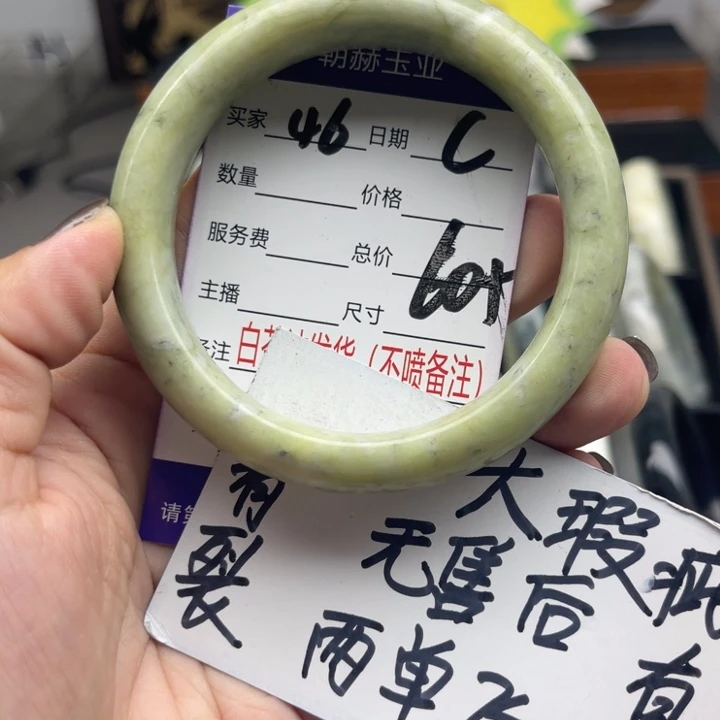 朝赫玉业
买家 46 日期 C
数量 价格
服务费 总价
主播 尺寸 60+
备注 白 发货（不喷备注）
请
有裂
大瑕疵
无售后 有
两单